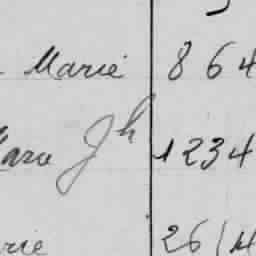 Marie 864
Jh 1234
rie 261